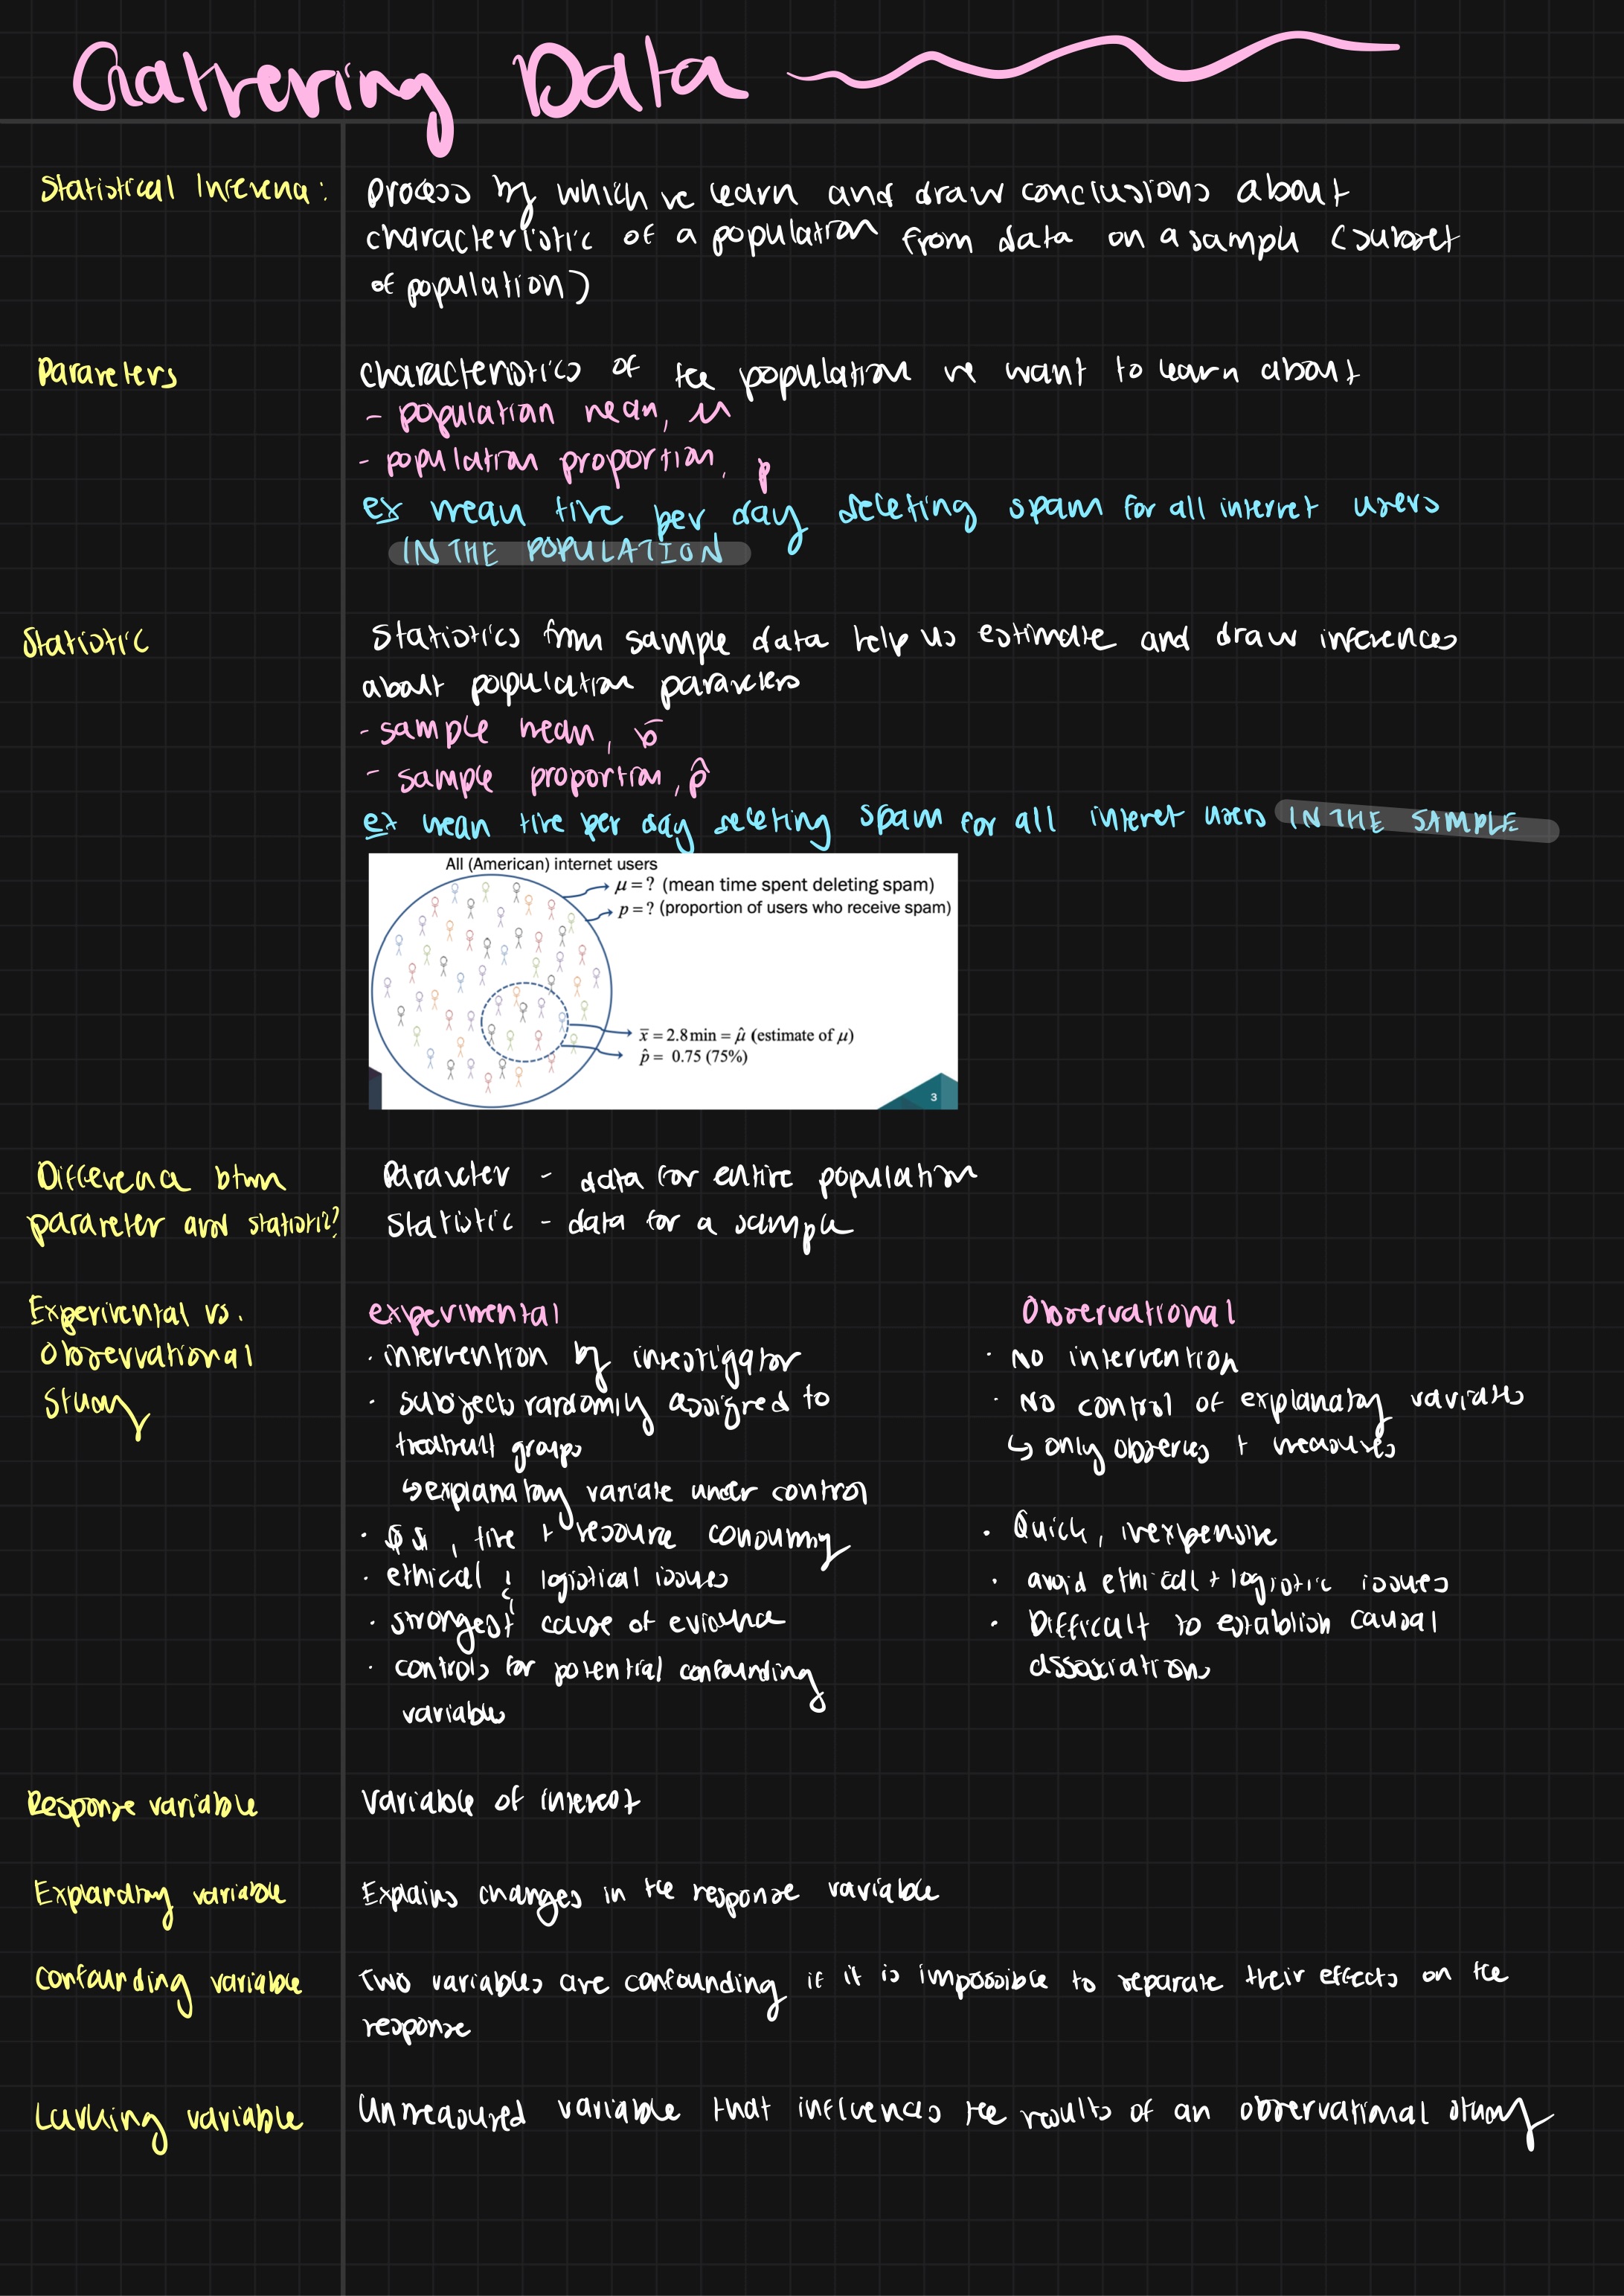 Gathering Data
Statistical Inference:
process by which we learn and draw conclusions about
characteristic of a population from data on a sample (subset
of population)
Parameters
characteristics of the population we want to learn about
- population mean, μ
- population proportion, p
ex mean time per day deleting spam for all internet users
IN THE POPULATION
Statistic
Statistics from sample data help us estimate and draw inferences
about population parameters
- sample mean, x̄
- sample proportion, p̂
ex mean time per day deleting spam for all internet users IN THE SAMPLE
All (American) internet users
μ = ? (mean time spent deleting spam)
p = ? (proportion of users who receive spam)
x̄ = 2.8 min = μ̂ (estimate of μ)
p̂ = 0.75 (75%)
3
Difference btwn
parameter and statistic?
Parameter - data for entire population
Statistic - data for a sample
Experimental vs.
Observational
Study
experimental
· intervention by investigator
· subjects randomly assigned to
treatment groups
↳ explanatory variate under control
· $$, time + resource consuming
· ethical & logistical issues
· strongest cause of evidence
· controls for potential confounding
variables
Observational
· No intervention
· No control of explanatory variates
↳ only observes + measures
· Quick, inexpensive
· avoid ethical + logistic issues
· Difficult to establish causal
associations
Response variable
variable of interest
Explanatory variable
Explains changes in the response variable
Confounding variable
Two variables are confounding if it is impossible to separate their effects on the
response
Lurking variable
Unmeasured variable that influences the results of an observational study